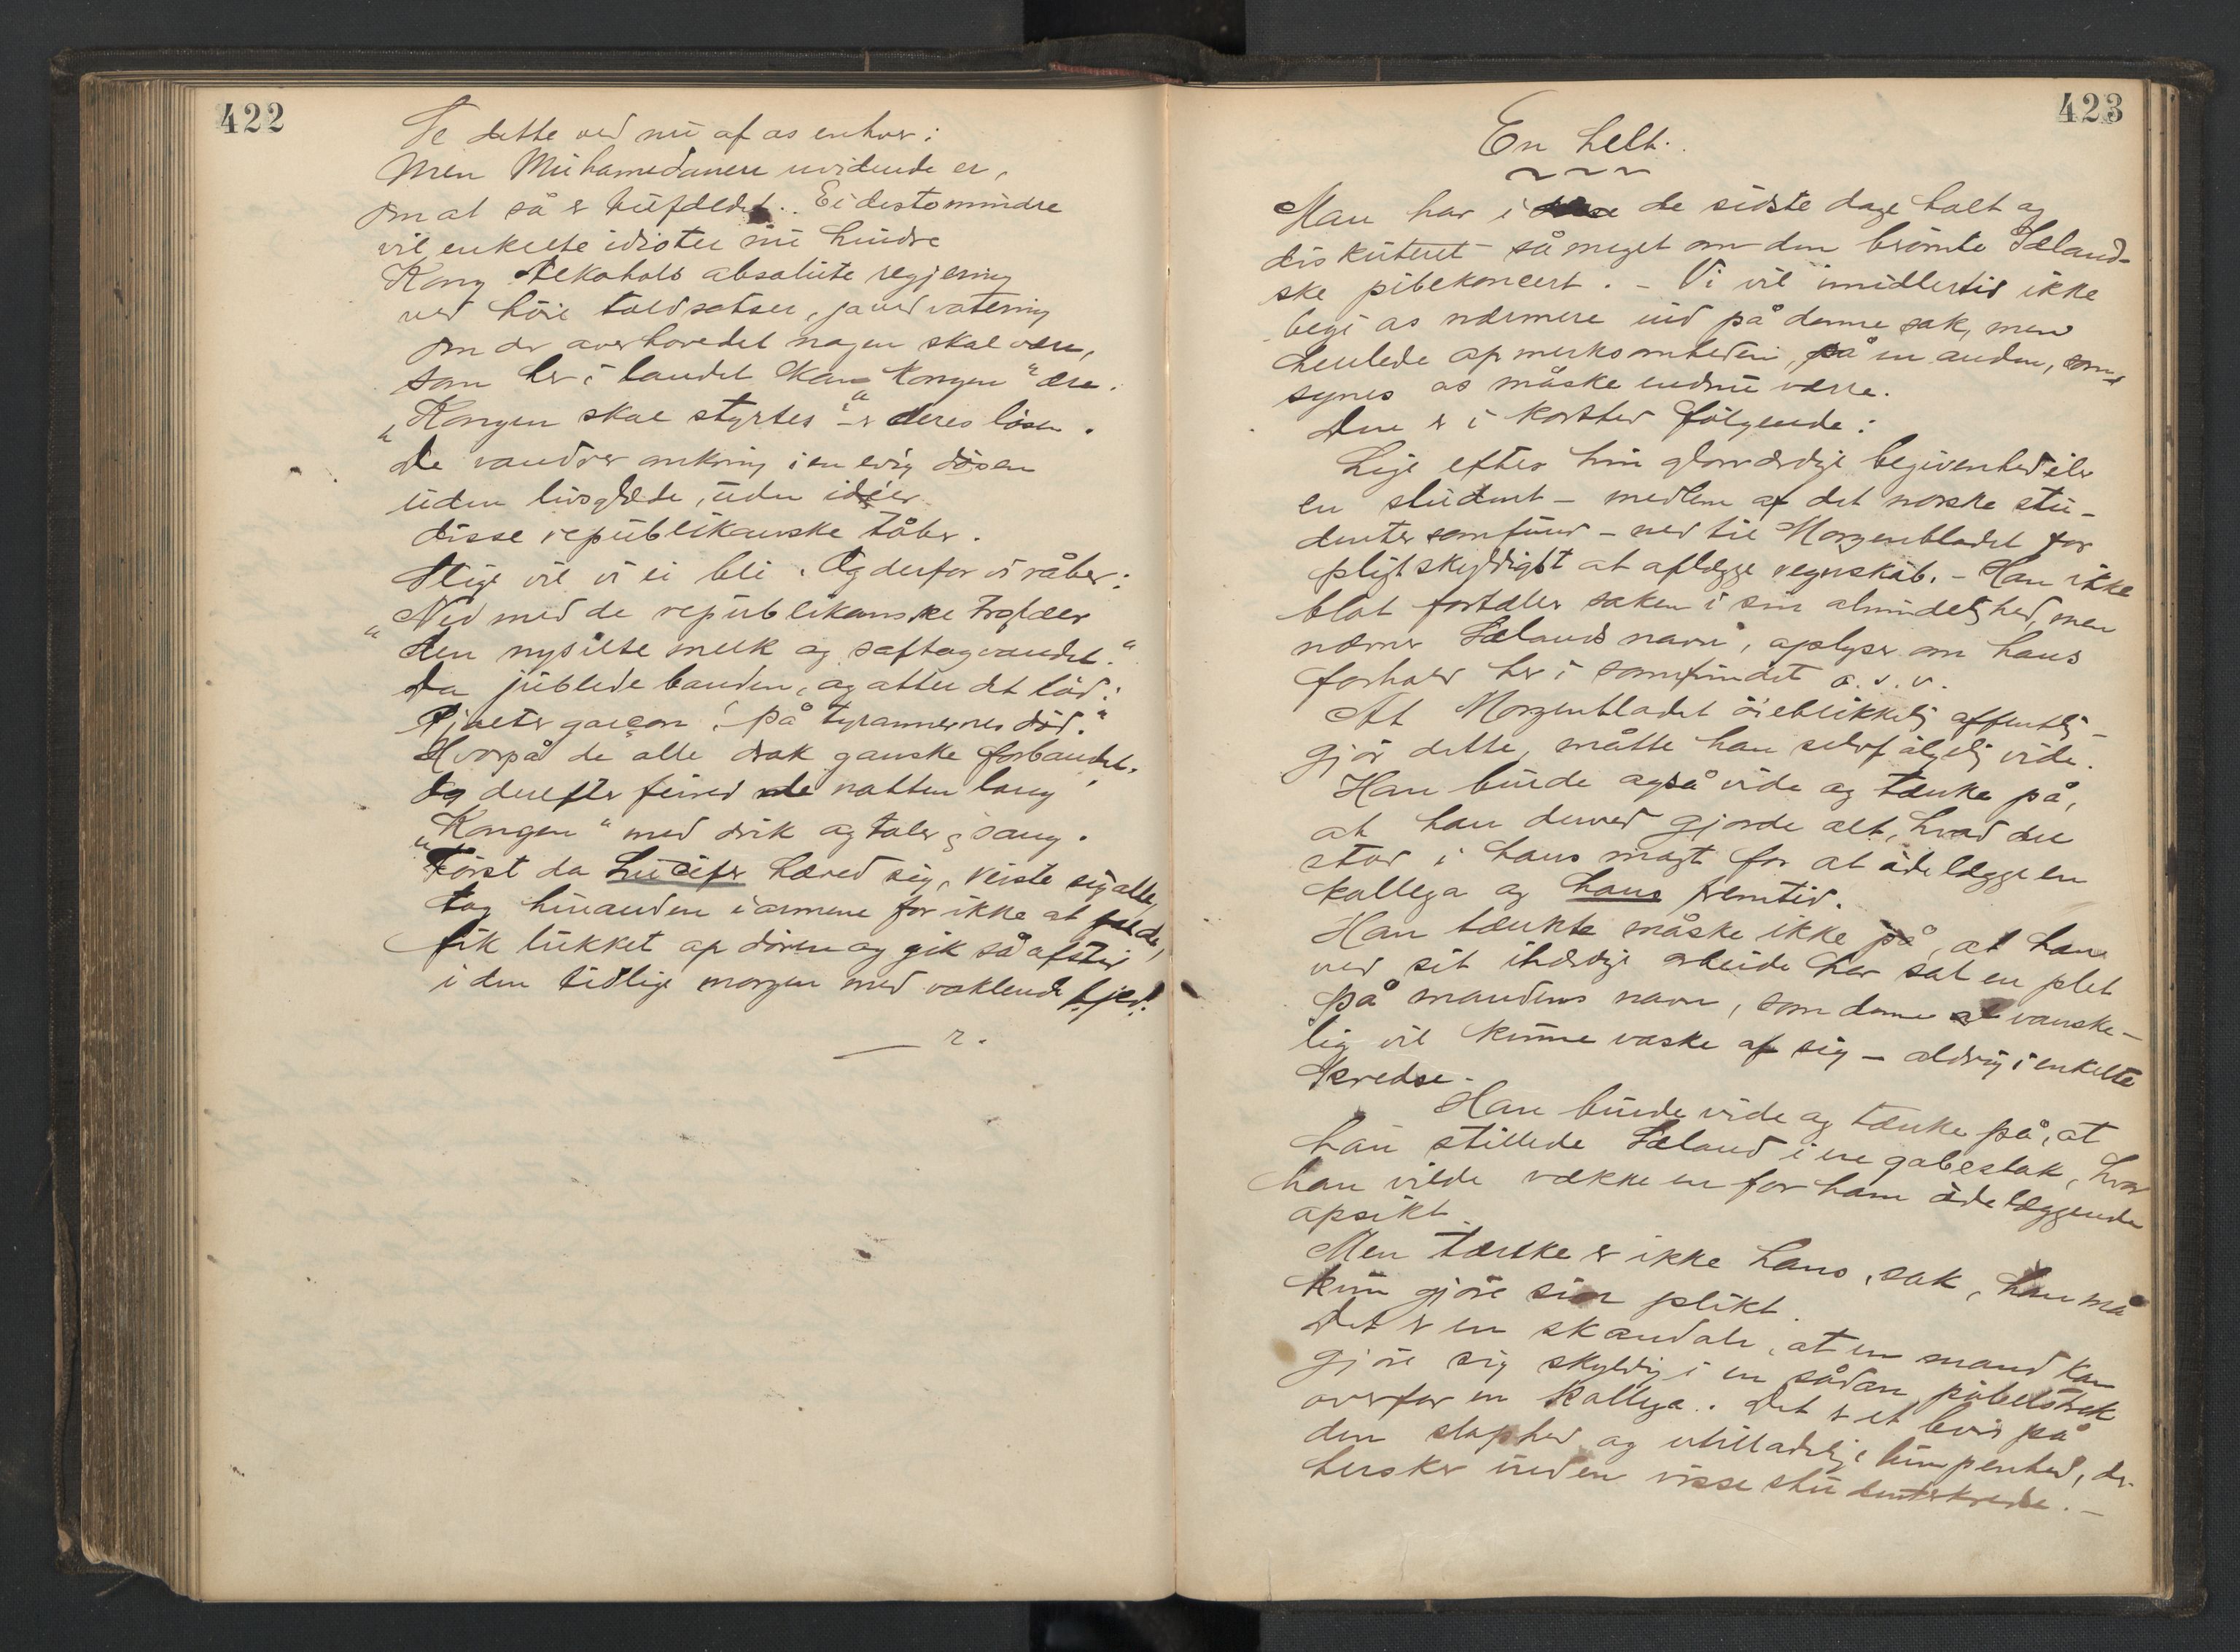 422
Te dette ved nu af os enhver:
Men Muhamedanere uvidende er,
om at så er tilfældet. Ei destomindre
vil enkelte idioter nu hindre
Kong Alkohols absolute regjering
ved höie toldsatser, ja ved votering
om der overhovedet nogen skal være,
som her i landet kan "Kongen" ære.
"Kongen skal styrtes" – er deres lösen.
De vandrer omkring i en evig dösen
uden livsglæde, uden idéer
disse republikanske tåber.
Slige vil vi ei bli. Og derfor vi råber:
"Ned med de republikanske
den nysilte melk og saftogvandet."
Da jublede banden, og atter det löd:
Pjolter garçon! på tyrannernes död."
Hvorpå de alle drak ganske forbandet.
Og derefter feired de natten lang
"Kongen" med drik og taler & sang.
Först da Lucifer hæved sig, reiste sig alle,
tog hinanden i armene for ikke at falde,
fik lukket op dören og gik så afsted
i den tidlige morgen med vaklende fjed.
r.
423
En helt.
Man har i de sidste dage talt og
diskuteret så meget om den berömte Sæland-
ske pibekoncert. – Vi vil imidlertid ikke
begi os nærmere ind på denne sak, men
henlede opmerksomheden på en anden, som
synes os måske endnu værre.
Den er i korthed fölgende:
Lige efter hin glorværdige begivenhed iler
en student – medlem af det norske stu-
dentersamfund – ned til Morgenbladet for
pligtskyldigst at aflægge regnskab. – Han ikke
blot fortæller saken i sin almindelighed, men
nævner Sælands navn, oplyser om hans
forhold her i samfundet o. s. v.
At Morgenbladet öieblikkelig offentlig-
gjör dette, måtte han selvfölgelig vide.
Han burde også vide og tænke på,
at han derved gjorde alt, hvad der
stod i hans magt for at ödelægge en
kollega og hans fremtid.
Han tænkte måske ikke på, at han
ved sit ihærdige arbeide har sat en plet
på mandens navn, som denne vanske-
lig vil kunne vaske af sig – aldrig i enkelte
kredse.
Han burde vide og tænke på, at
han stillede Sæland i en gabestok, hvor
han vilde vække en for ham ödelæggende
opsikt.
Men tænke er ikke hans sak, han må
kun gjöre sin plikt.
Det er en skandale, at en mand kan
gjöre sig skyldig i en sådan pöbelstrek
overfor en kollega. Det er et bevis på
den slaphed og utilladelige lumpenhed, der
hersker inden visse studenterkredse. –